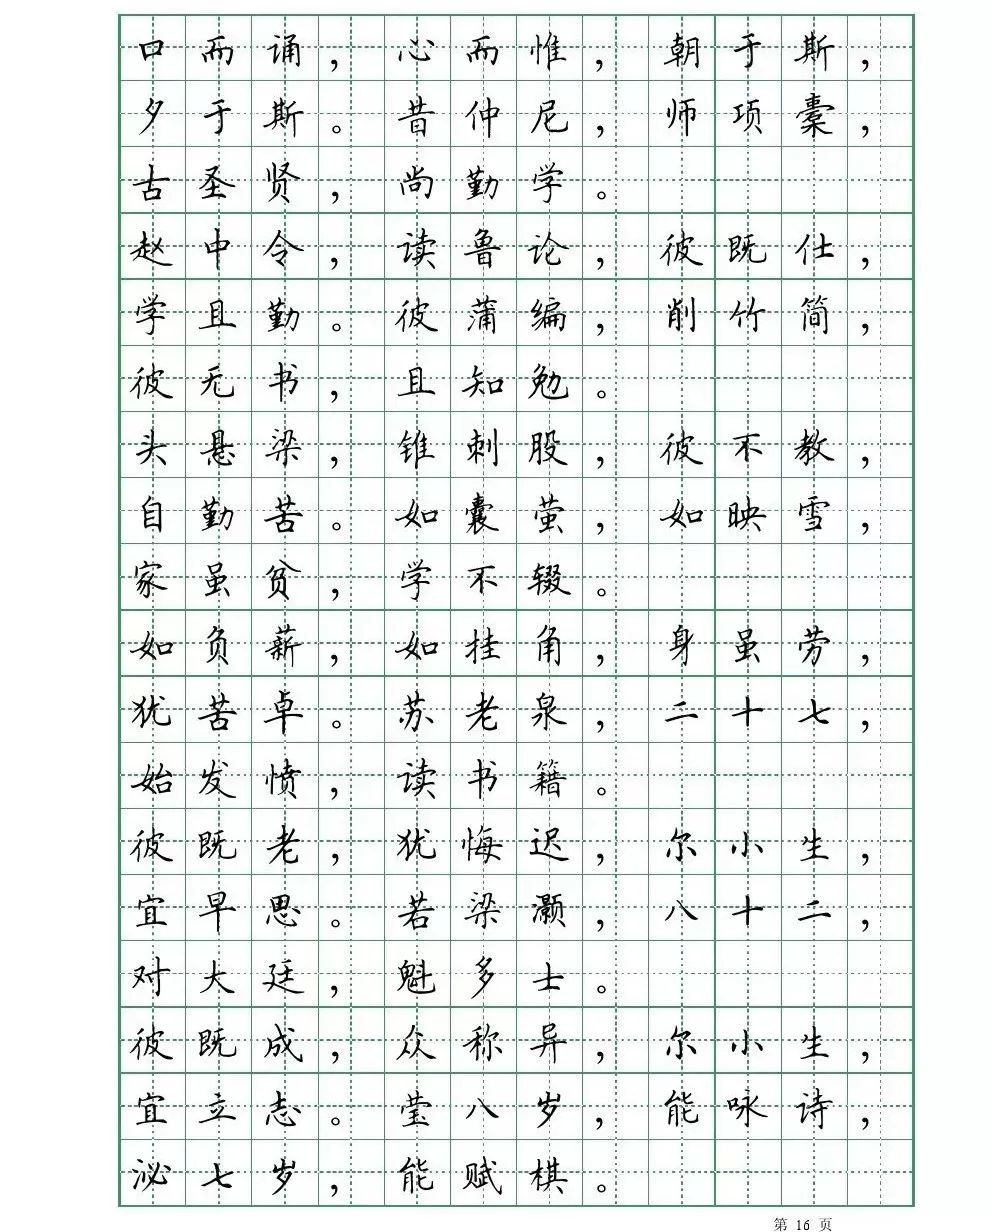 口而诵，心而惟，朝于斯，
夕于斯。昔仲尼，师项橐，
古圣贤，尚勤学。
赵中令，读鲁论，彼既仕，
学且勤。彼蒲编，削竹简，
彼无书，且知勉。
头悬梁，锥刺股，彼不教，
自勤苦。如囊萤，如映雪，
家虽贫，学不辍。
如负薪，如挂角，身虽劳，
犹苦卓。苏老泉，二十七，
始发愤，读书籍。
彼既老，犹悔迟，尔小生，
宜早思。若梁灏，八十二，
对大廷，魁多士。
彼既成，众称异，尔小生，
宜立志。莹八岁，能咏诗，
泌七岁，能赋棋。
第 16 页